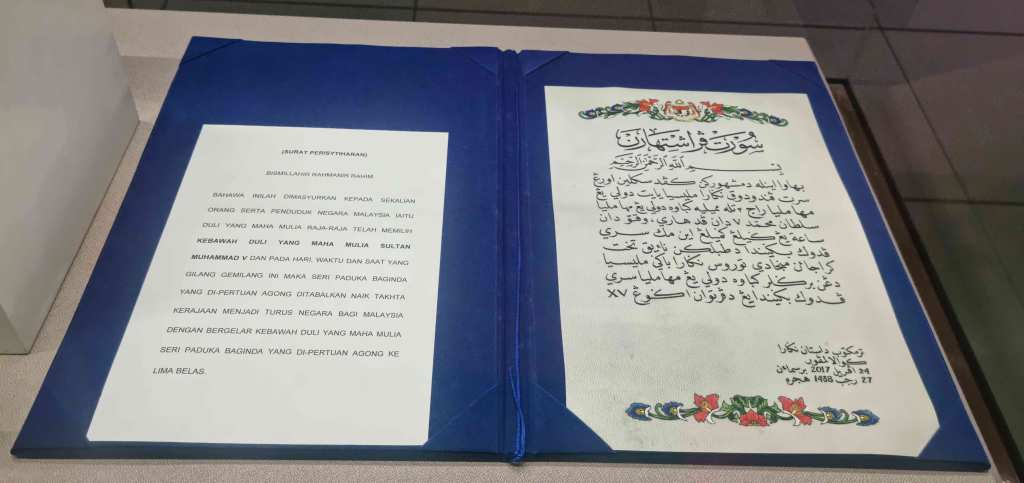 (SURAT PERISYTIHARAN)
BISMILLAHIR RAHMANIR RAHIM
BAHAWA INILAH DIMASYURKAN KEPADA SEKALIAN
ORANG SERTA PENDUDUK NEGARA MALAYSIA IAITU
DULI YANG MAHA MULIA RAJA-RAJA TELAH MEMILIH
KEBAWAH DULI YANG MAHA MULIA SULTAN
MUHAMMAD V DAN PADA HARI, WAKTU DAN SAAT YANG
GILANG GEMILANG INI MAKA SERI PADUKA BAGINDA
YANG DI-PERTUAN AGONG DITABALKAN NAIK TAKHTA
KERAJAAN MENJADI TURUS NEGARA BAGI MALAYSIA
DENGAN BERGELAR KEBAWAH DULI YANG MAHA MULIA
SERI PADUKA BAGINDA YANG DI-PERTUAN AGONG KE
LIMA BELAS.
سورت ڤراشتهارن
بسم الله الرحمن الرحيم
بهاوا اينله دمشهورکن کڤد سکلين اورڠ
سرت ڤندودوق نݢارا مليسيا يايت دولي يڠ
مها مليا راج٢ تله ميليه کباوه دولي يڠ مها مليا
سلطان محمد ٧ دان ڤد هاري، وقتو دان
ساعة يڠ ݢيلڠ ݢميلڠ اين مک سري
ڤدوک بݢيندا دطبلکن نايق تخت
کراجأن منجادي توروس نݢارا باݢي مليسيا
دڠن برݢلر کباوه دولي يڠ مها مليا سري
ڤدوک بݢيندا يڠ دڤرتوان اݢوڠ XV
ترمکتوب داستان نݢارا
کوالا لمڤور
24 اڤريل 2017 برسمأن
27 رجب 1438 هجره